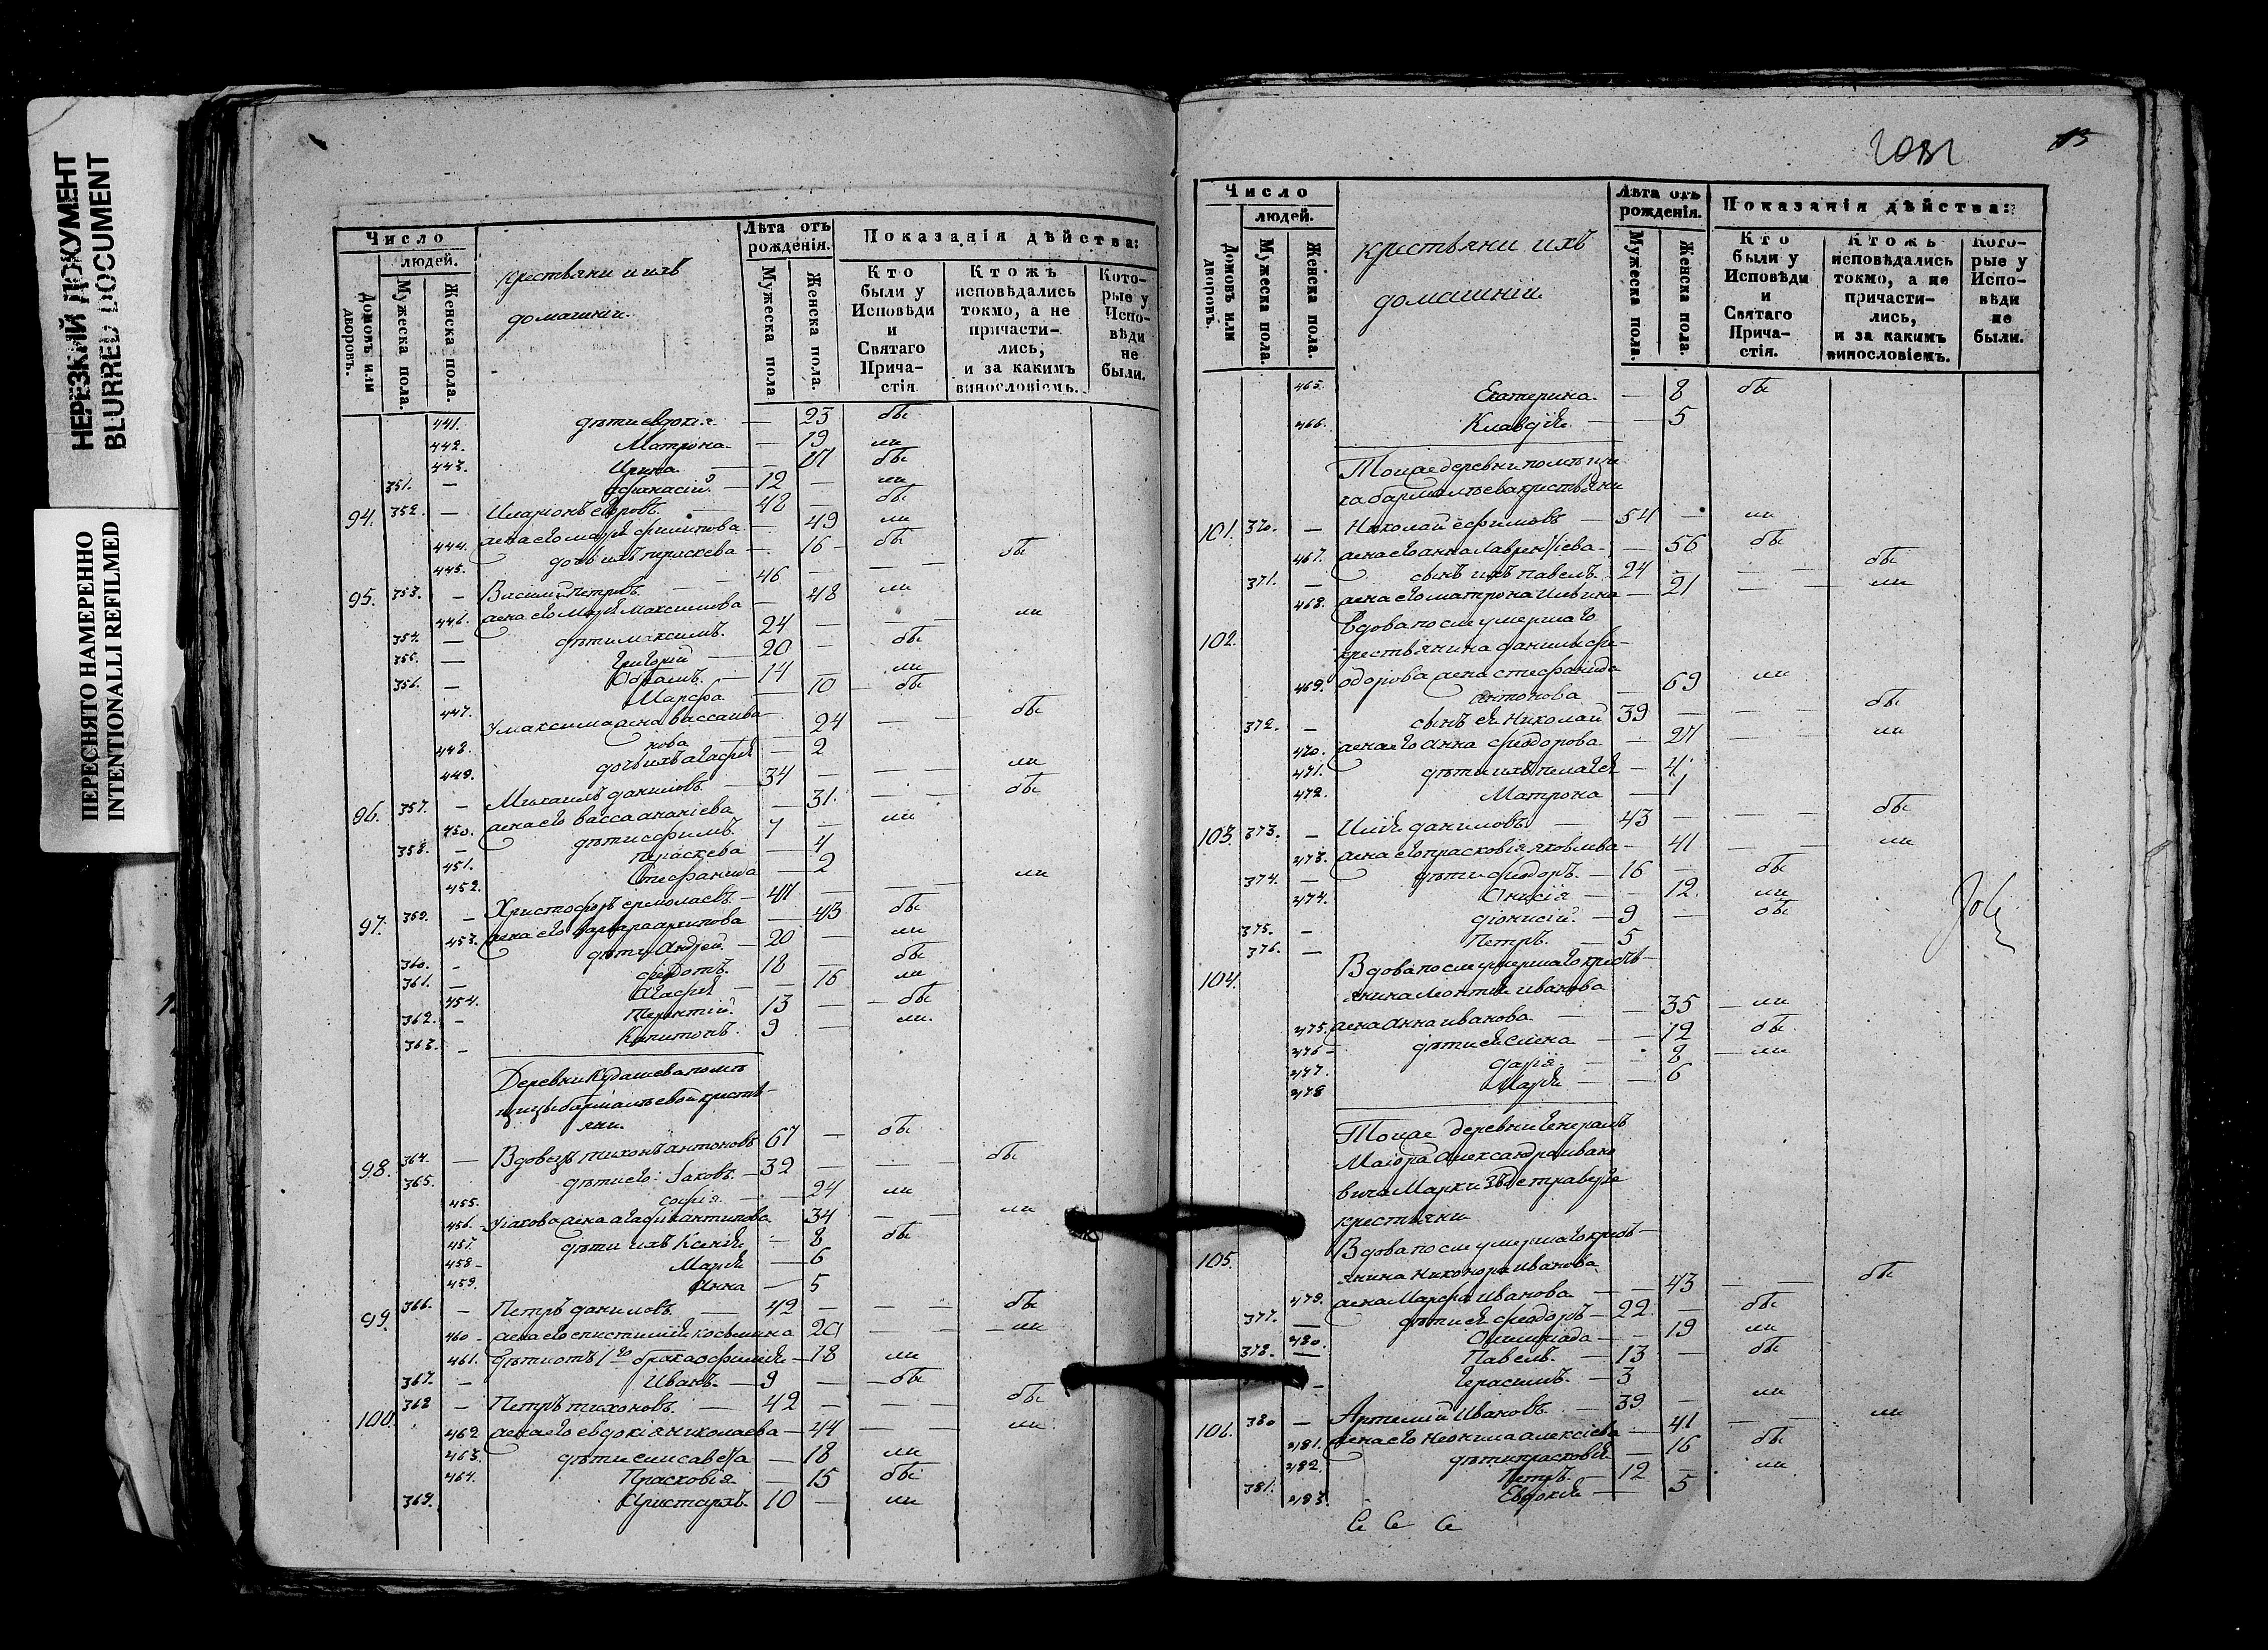 НЕРЕЗКИЙ ДОКУМЕНТ
BLURRED DOCUMENT
ПЕРЕСНЯТО НАМЕРЕННО
INTENTIONALLI REFILMED
Число
людей.
Домовъ или дворовъ.
Мужеска пола.
Женска пола.
крестьяни и ихъ
домашнiи.
Лѣта отъ рожденiя.
Мужеска пола
Женска пола.
Показанiя дѣйства:
Кто были у Исповѣди и Святаго Причастiя
Ктожъ исповѣдались токмо, а не причастились, и за какимъ винословiемъ.
Которые у Исповѣди не были.
441. дѣти евдокiя — 23 бы
442. Матрона — 19 ли
443. Ирина — бы
351. — Афанасiй — 12 — ли
94. 352. — Иларионъ — 48 — бы
444. жена его марiя филипова — 49 ли
445. дочь ихъ параскева — 16 бы
95. 353. — Василий Петровъ — 46 — — — бы
446. жена его Марiя Максимова — 48 ли
354. — дѣти максимъ. 24 — — — ли
355. — Григорiй — 20 — бы
356. — 14 — ли
447. Марфа — 10 бы
448. У максима жена васса ива
нова — 24 — — бы
449. дочь ихъ агафiя — 2
96. 357. — Михаилъ даниловъ — 34 — — — ли
450. жена его васса ананiева — 31. — — бы
358. — дѣти ефимъ. 7 — ли
451. Параскева — 4
452. Стефанида — 2
97. 359. — Христофоръ ермолаевъ. — 47 — — — ли
453. жена его варвара архипова — 43 бы
360. — дѣти Андрей. — 20 — ли
361. — федотъ. 18 — бы
454. Агафiя — — 16 ли
362. — Терентiй. 13 — — бы
363. — Капитонъ. 9 — ли.
Деревни Кудашева помѣ
щицы бармалѣевой кресть
яни.
98. 364. — Вдовецъ тихонъ антоновъ 67 — бы
365. дѣти его: Iаковъ. — 32 — — — бы
455. софiя. — — 24 ли
456. У iакова жена агафiя антипова 34 — — ли
457. дѣти ихъ Ксенiя — 8 бы
458. Марiя — 6
459. Анна — 5
99. 366. — Петръ даниловъ. — 42 — — — бы
460 жена его епистимiя косьмина — — — ли
461. дѣти отъ 1го брака ефимiя — 18 ли
367. — Иванъ. — 9 — — бы
100. 368 — Петръ тихоновъ. — 42 — — — бы
462. жена его евдокiя николаева — 44 — — ли
463. дѣти елисавета — 18 ли
464. Прасковiя — 15 бы
369. Аристархъ. 10 — ли
2031
Число
людей.
Домовъ или дворовъ.
Мужеска пола.
Женска пола.
крестьяни ихъ
домашнiи
Лѣта отъ рожденiя.
Мужеска пола.
Женска пола.
Показанiя дѣйства:
Кто были у Исповѣди и Святаго Причастiя.
Ктожъ исповѣдались токмо, а не причастились, и за какимъ винословiемъ.
Которые у Исповѣди не были.
465. Екатерина. — 8 бы
466. Клавдiя — 5
Тоиже деревни помѣщи
ка бармалѣева крестьяни
101. 370. — Николай ефимовъ — 54 — ли
467. жена его анна Лаврентiева — 56 бы
371. — сынъ ихъ павелъ. 24 — — — бы
468. жена его матрона Ильина — 21 — — ли
102. Вдова после умершаго
крестьянина данилы фе
469. одорова жена стефанида
антонова — 69 ли
372. — сынъ ея Николай 39 — — — бы
470. жена его Анна феодорова — 27 — — ли
471. дѣти ихъ пелагiя — 4
472. Матрона — 1
103. 373. — Илiя даниловъ — 43 — — — бы
473. жена его прасковiя яковлева — 41 — — ли
374. — дѣти феодоръ. — 16 — бы
474. Анисiя — — 12. ли
375. — дiонисiй. — 9 — бы
376. — Петръ. — 5
104. Вдова после умершаго кресть
янина Леонтiя иванова
475. жена Анна иванова — — 35 — ли
476 — дѣти ея Елена — — 12 бы
477. дарiя. — — 8 — ли
478 Марiя — — 6
Тоиже деревни Генералъ
Маiора Александра ивано
вича Марки Зъ де траверсе
крестьяни
105. Вдова после умершаго крест
янина Никонора иванова
479. жена Марфа иванова — — 43 — — бы
377. — дѣти ея феодоръ — 22 — бы
480. Олимпiада — — 19 ли
378. — Павелъ. — 13 — бы
— Герасимъ. — 3
106. 380 — Артемiй Ивановъ. — 39 — ли
481. жена его Неонила алексiева — 41 — — ли
482. дѣти прасковiя — 16 бы
381. Петръ. — 12 — ли
483. Евдокiя — — 5